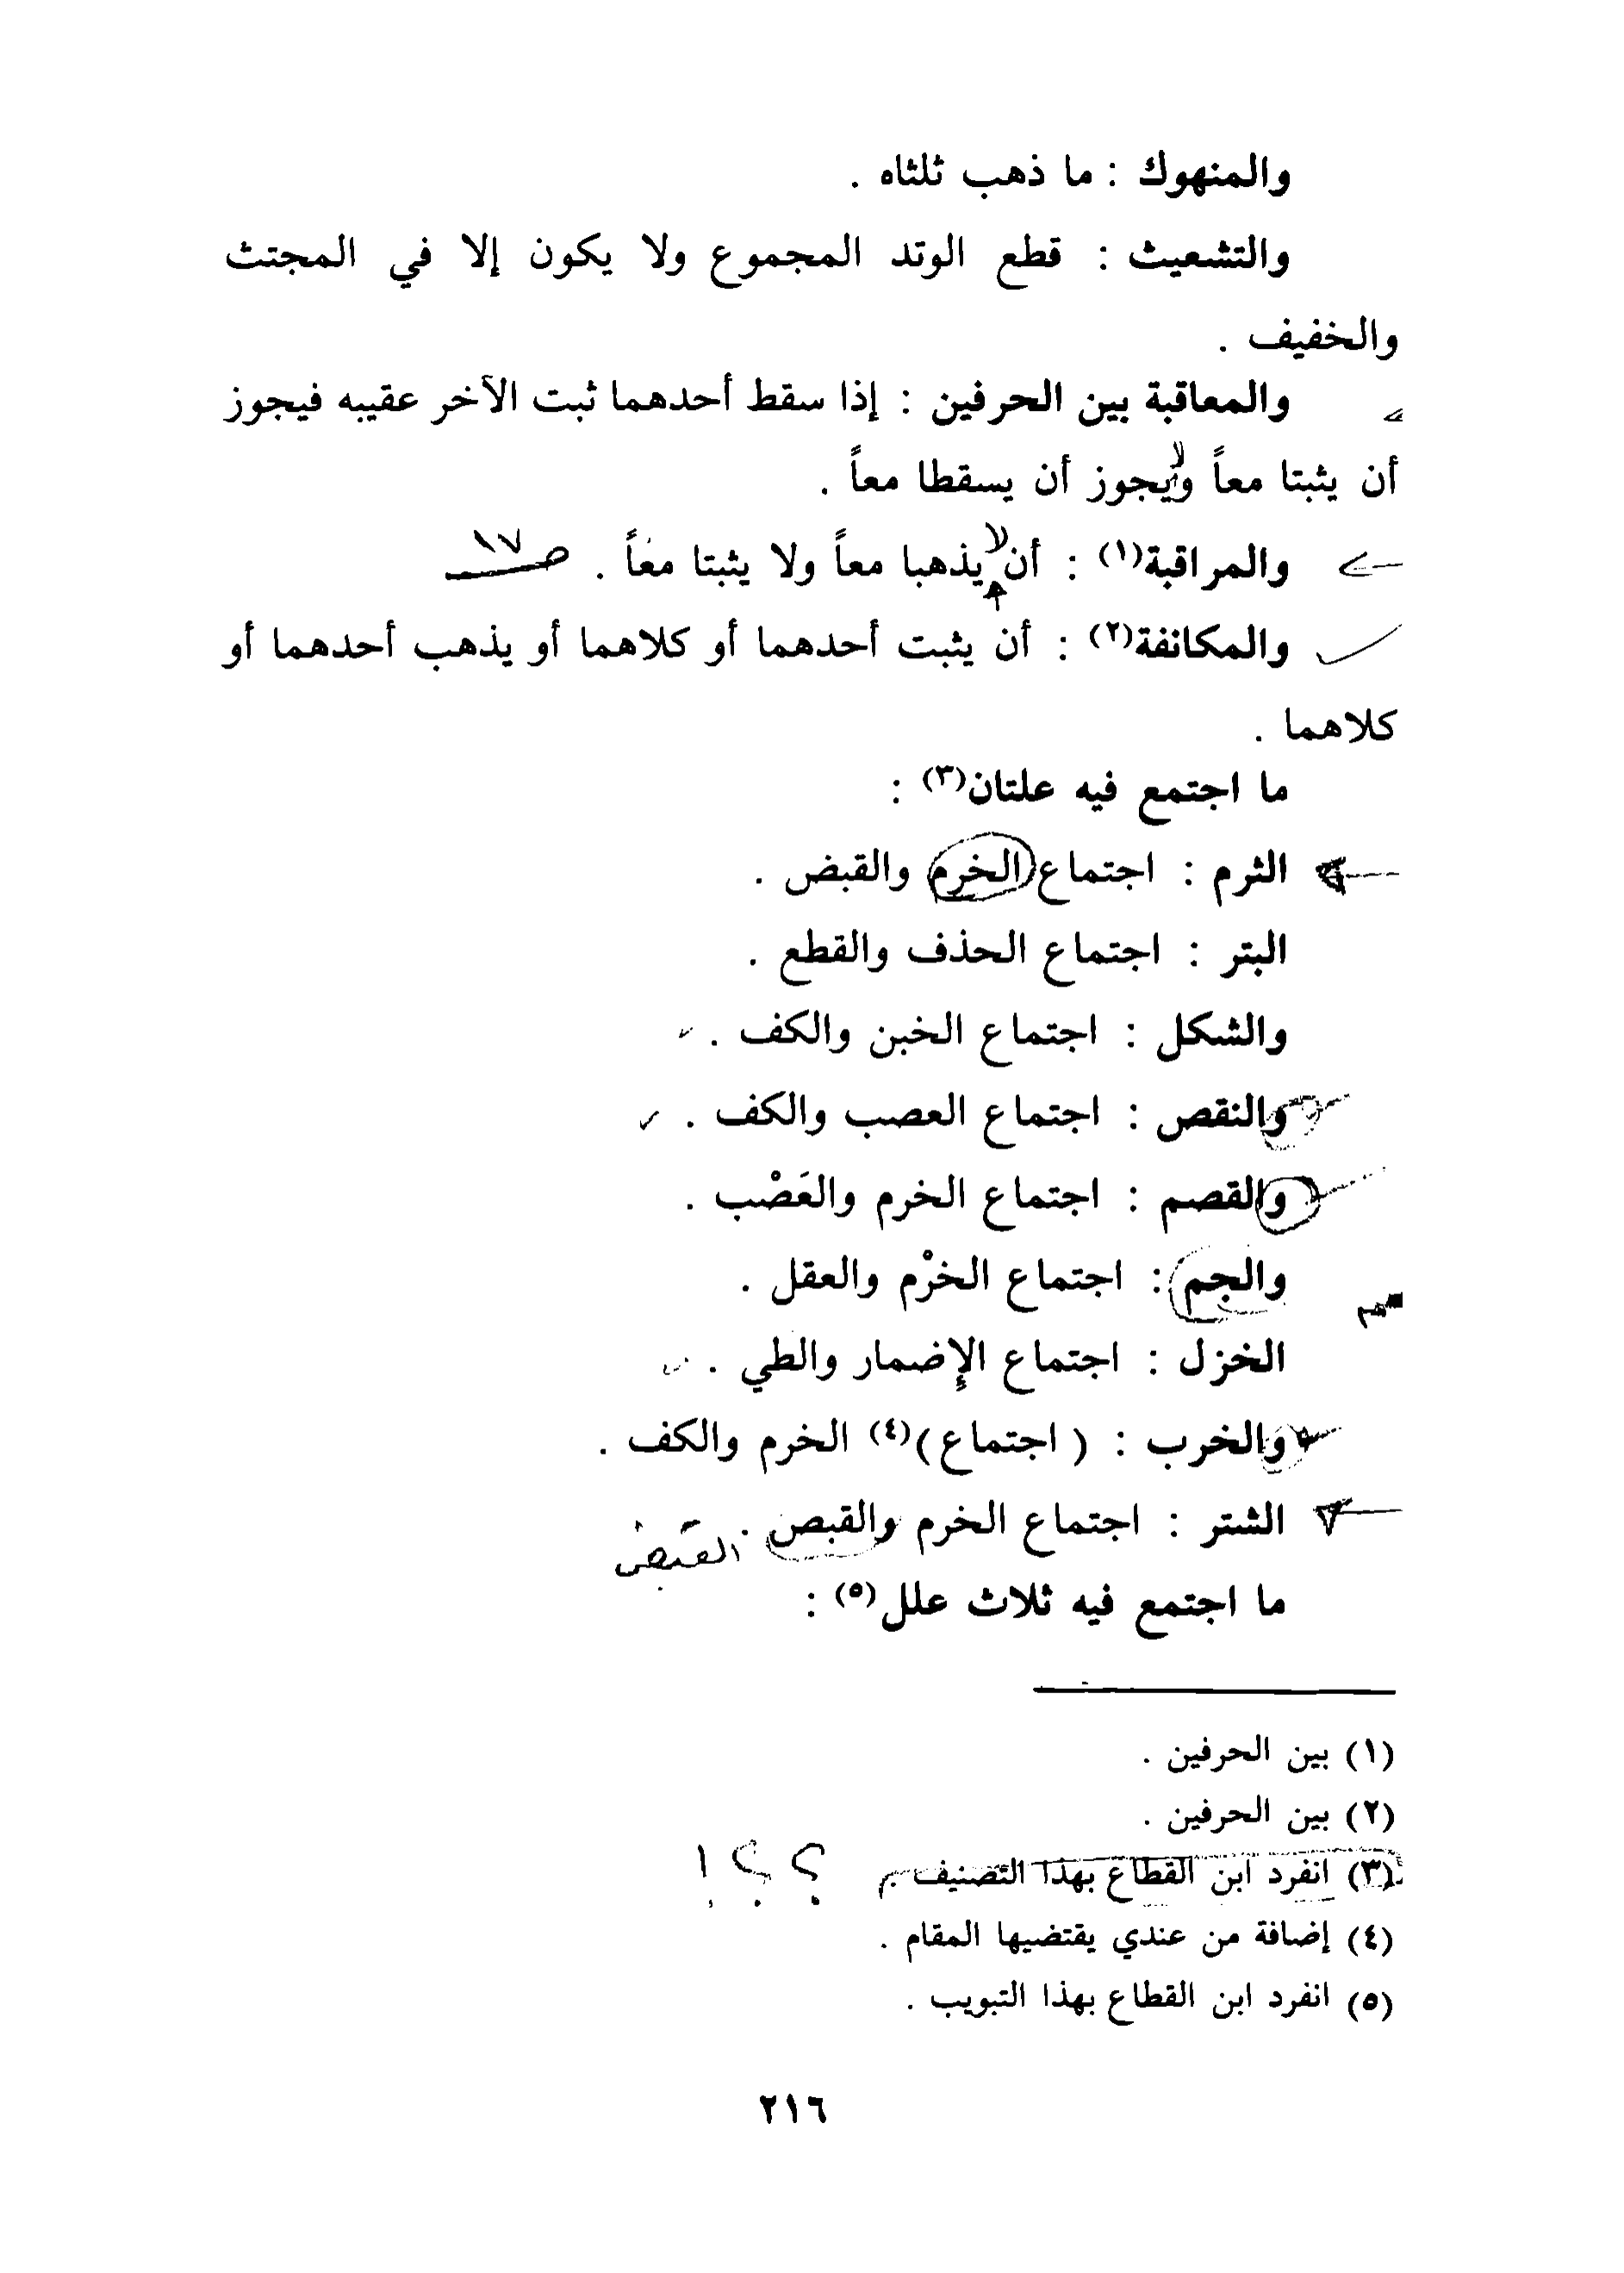 والمنهوك : ما ذهب ثلثاه .
والتشعيث : قطع الوتد المجموع ولا يكون إلا في المجتث
والخفيف .
والمعاقبة بين الحرفين : إذا سقط أحدهما ثبت الآخر عقيبه فيجوز
أن يثبتا معاً ولا يجوز أن يسقطا معاً .
والمراقبة(١) : أن لا يذهبا معاً ولا يثبتا معاً . صـ ١٧
والمكانفة(٢) : أن يثبت أحدهما أو كلاهما أو يذهب أحدهما أو
كلاهما .
ما اجتمع فيه علتان(٣) :
الثرم : اجتماع الخرم والقبض .
البتر : اجتماع الحذف والقطع .
والشكل : اجتماع الخبن والكف .
والنقص : اجتماع العصب والكف .
والقصم : اجتماع الخرم والعَصْب .
والجم : اجتماع الخرْم والعقل .
الخزل : اجتماع الإضمار والطي .
والخرب : ( اجتماع )(٤) الخرم والكف .
الشتر : اجتماع الخرم والقبص .
القبض
ما اجتمع فيه ثلاث علل(٥) :
(١) بين الحرفين .
(٢) بين الحرفين .
(٣) انفرد ابن القطاع بهذا التصنيف . ؟ ؟ !
(٤) إضافة من عندي يقتضيها المقام .
(٥) انفرد ابن القطاع بهذا التبويب .
٢١٦